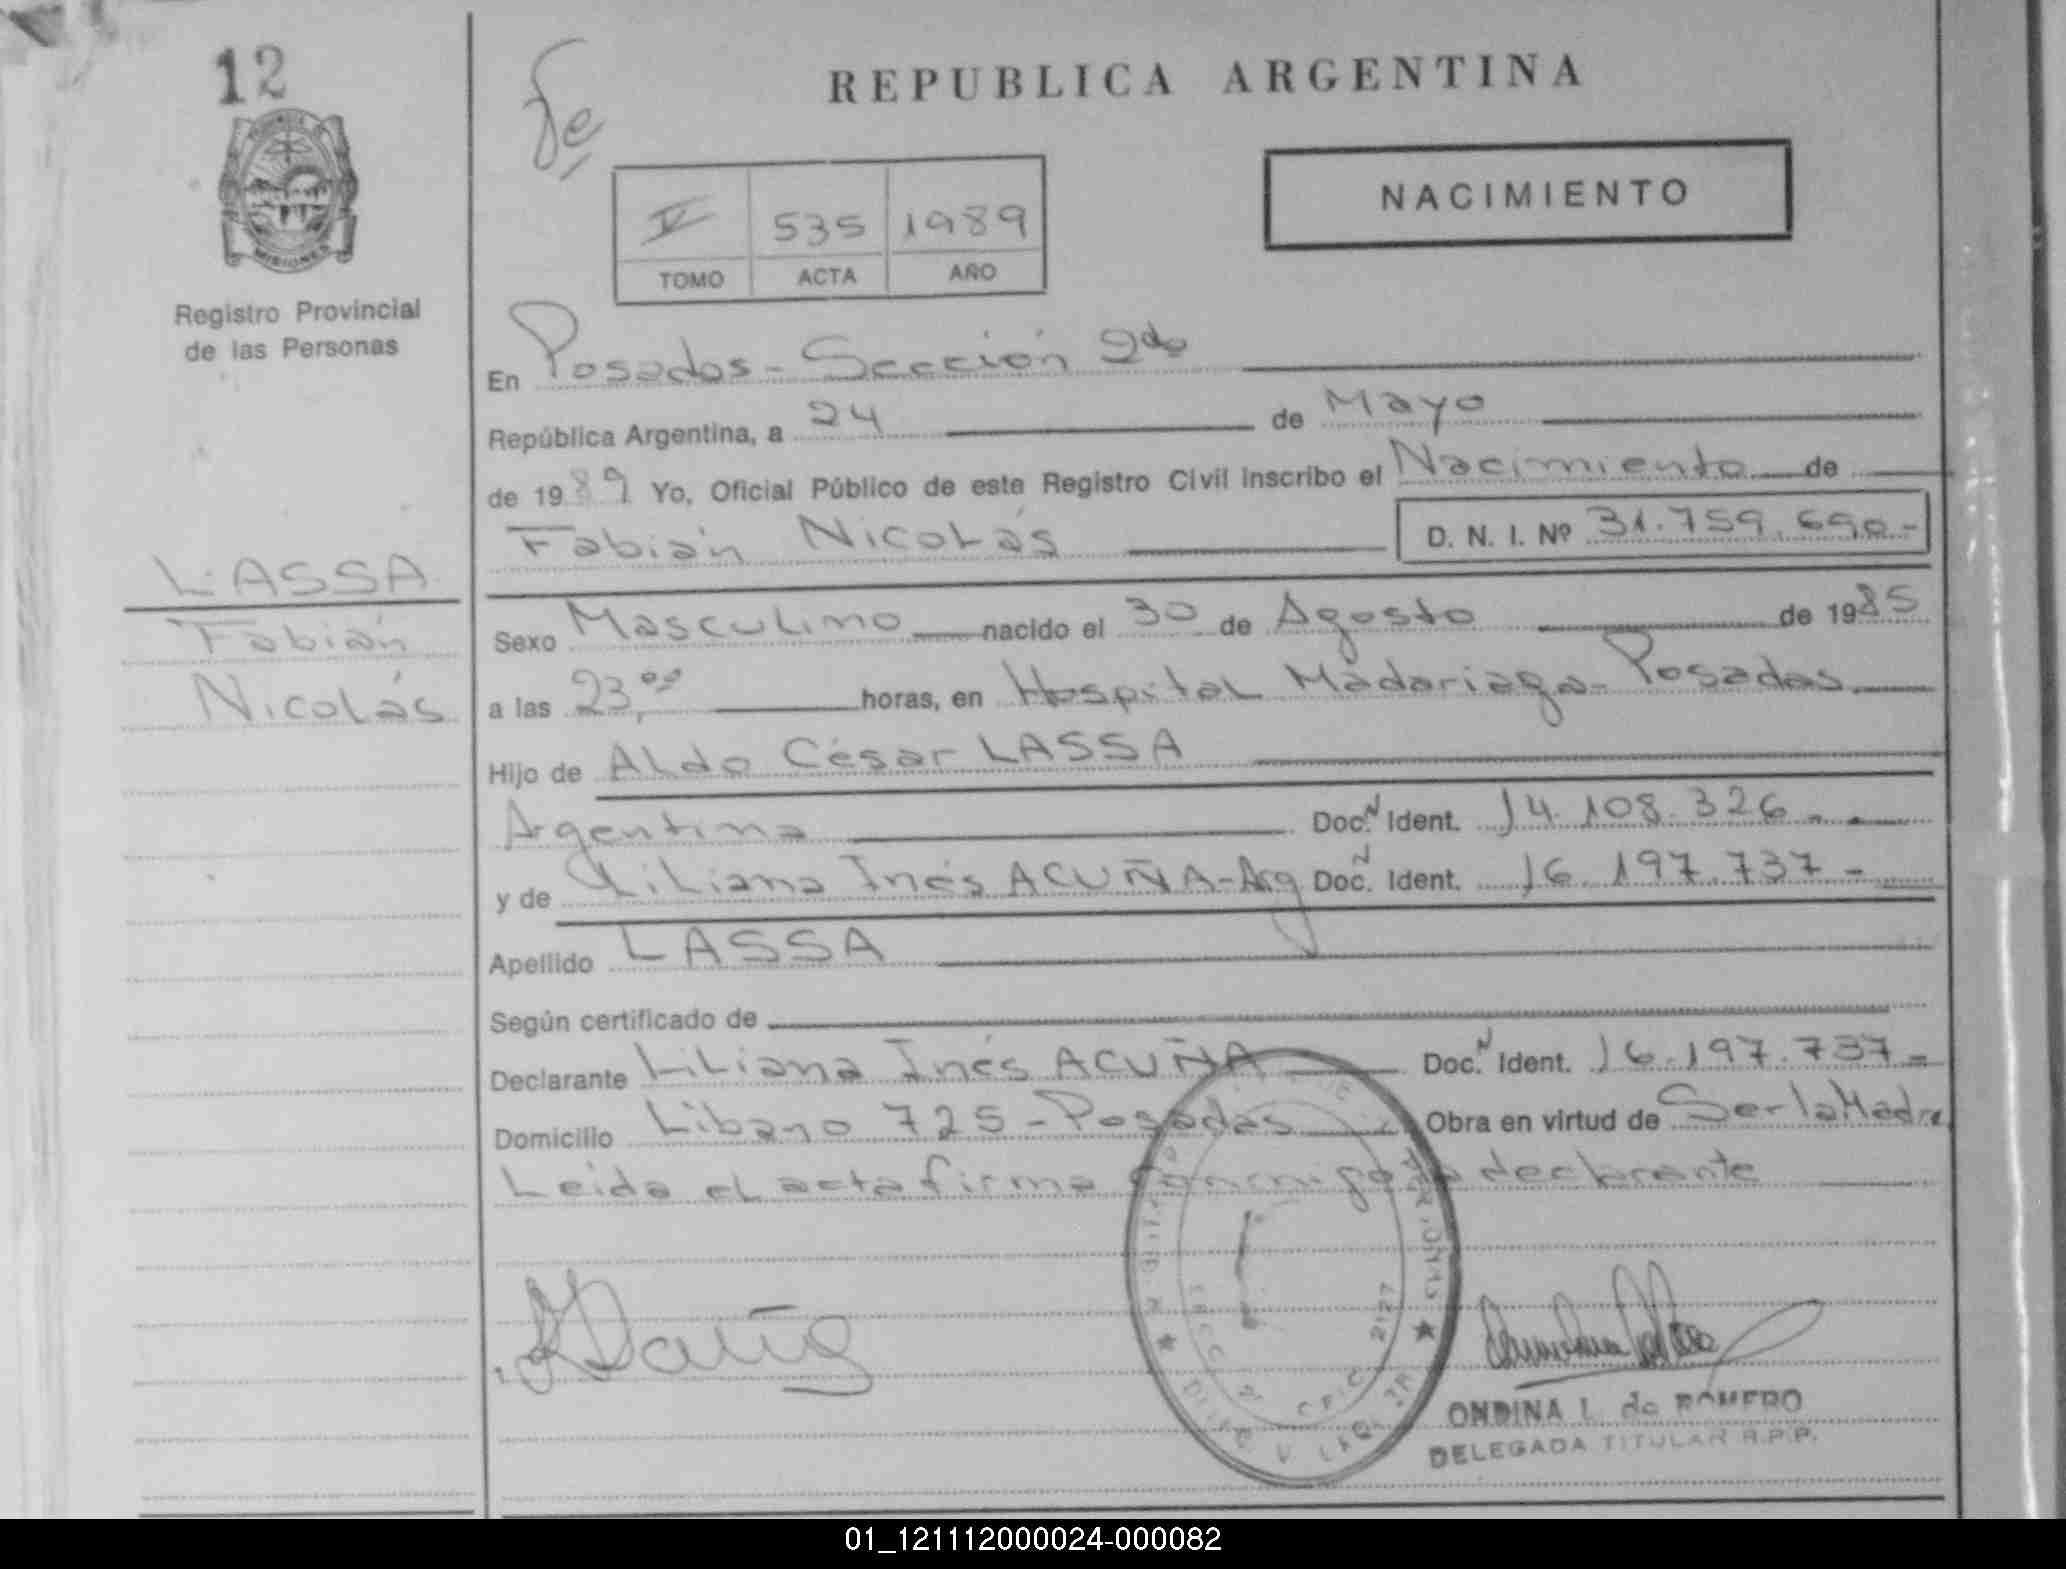 12
MISIONES
Registro Provincial
de las Personas
LASSA
Fabián
Nicolás
REPUBLICA ARGENTINA
NACIMIENTO
V 535 1989
TOMO ACTA AÑO
En Posadas - Sección 2da
República Argentina, a 24 de Mayo
de 1989 Yo, Oficial Público de este Registro Civil inscribo el Nacimiento de
Fabián Nicolás D. N. I. Nº 31.759.690.-
Sexo Masculino nacido el 30 de Agosto de 1985
a las 23,00 horas, en Hospital Madariaga - Posadas.
Hijo de Aldo César LASSA
Argentina Doc. N Ident. 14.108.326.-
y de Liliana Inés ACUÑA-Arg Doc. N Ident. 16.197.737-
Apellido LASSA
Según certificado de
Declarante Liliana Inés ACUÑA Doc. N Ident. 16.197.737-
Domicilio Libano 725 - Posadas Obra en virtud de Ser la Madre
Leida el acta firma conmigo la declarante
ONDINA L. de ROMERO
DELEGADA TITULAR R.P.P.
01_121112000024-000082